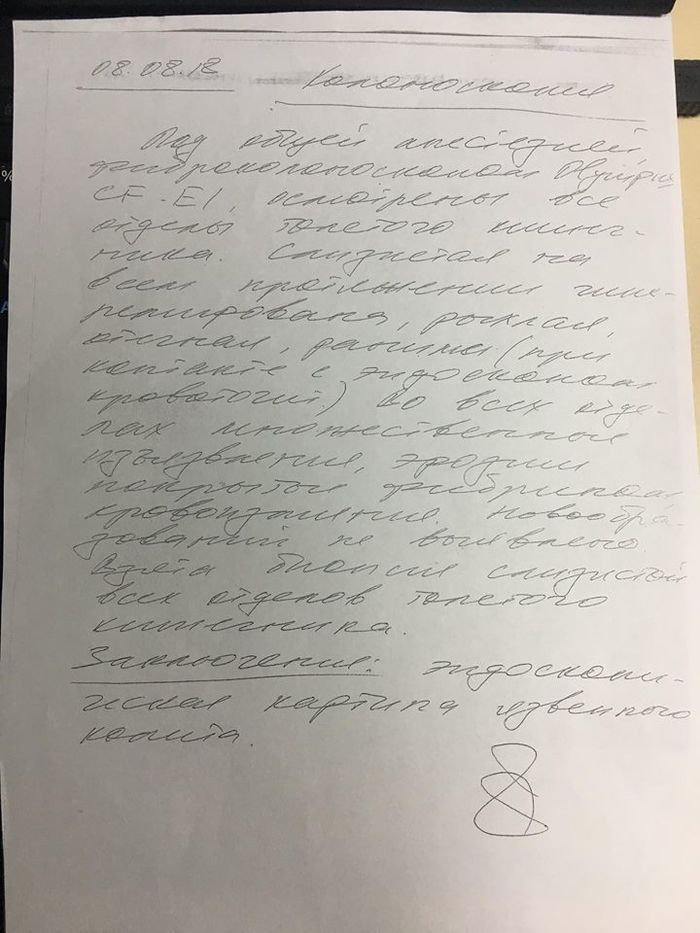 08.08.18 Колоноскопия
Под общей анестезией,
фиброколоноскопом Olympus
CF-E1, осмотрены все
отделы толстого кишеч-
ника. Слизистая на
всем протяжении гипе-
ремирована, рыхлая,
отечная, ранима (при
контакте с эндоскопом
кровоточит) во всех отде-
лах множественные
изъязвления, эрозии
покрытые фибрином,
кровоизлияния. Новообра-
зований не выявлено.
Взята биопсия слизистой
всех отделов толстого
кишечника.
Заключение: эндоскопи-
ческая картина язвенного
колита.